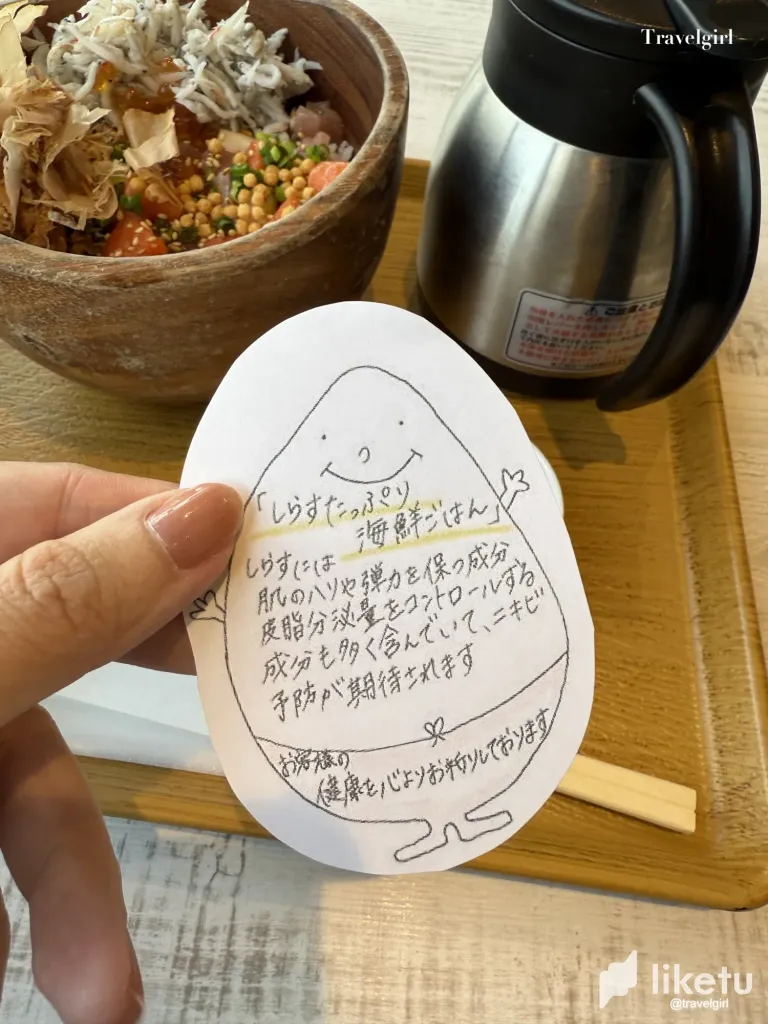 Travelgirl
「しらすたっぷり
海鮮ごはん」
しらすには
肌のハリや弾力を保つ成分
皮脂分泌量をコントロールする
成分も多く含んでいて、ニキビ
予防が期待されます
お客様の
健康を心よりお祈りしております
liketu
@travelgirl